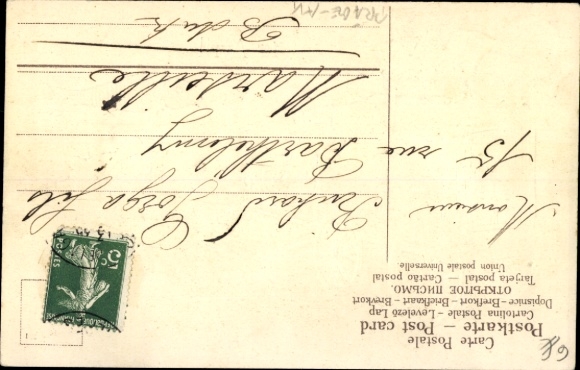 Carte Postale
Postkarte — Post card
Cartolina Postale – Levelező Lap
Dopisnice – Brefkort – Briefkaart – Brevkort
ОТКРЫТОЕ ПИСЬМО.
Tarjeta postal — Cartão postal
Union postale Universelle
5c
POSTES
Monsieur
Richard fils
15 rue Barthelemy
Marseille